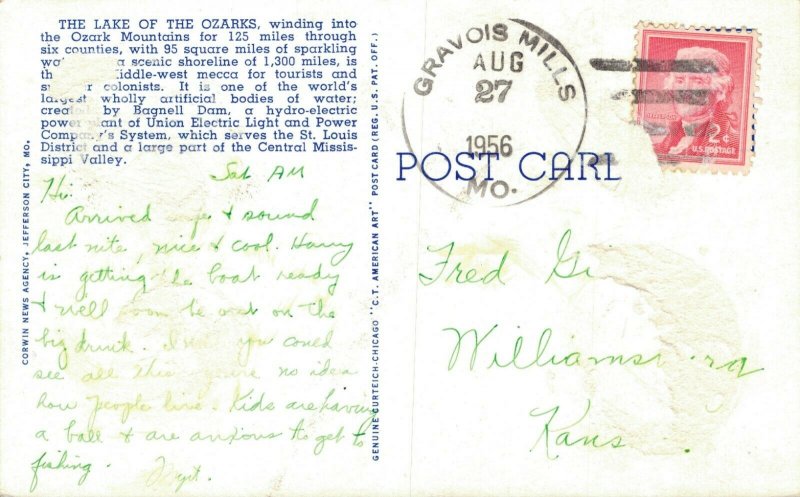 THE LAKE OF THE OZARKS, winding into
the Ozark Mountains for 125 miles through
six counties, with 95 square miles of sparkling
a scenic shoreline of 1,300 miles, is
iddle-west mecca for tourists and
colonists. It is one of the world's
largest wholly artificial bodies of water;
created by Bagnell Dam, a hydro-electric
power plant of Union Electric Light and Power
Company's System, which serves the St. Louis
District and a large part of the Central Missis-
sippi Valley.
Sat AM
Hi:
Arrived safe & sound
last nite, nice & cool. Harry
is getting the boat ready
& we'll soon be out on the
big drink. I you could
see all this no idea
how people live. Kids are having
a ball & are anxious to get to
fishing.
CORWIN NEWS AGENCY, JEFFERSON CITY, MO.
GENUINE CURTEICH-CHICAGO "C.T. AMERICAN ART" POST CARD (REG. U.S. PAT. OFF.)
GRAVOIS MILLS
AUG
27
1956
MO.
JEFFERSON
2¢
U.S. POSTAGE
POST CARD
Fred Gi
Williamsburg
Kans